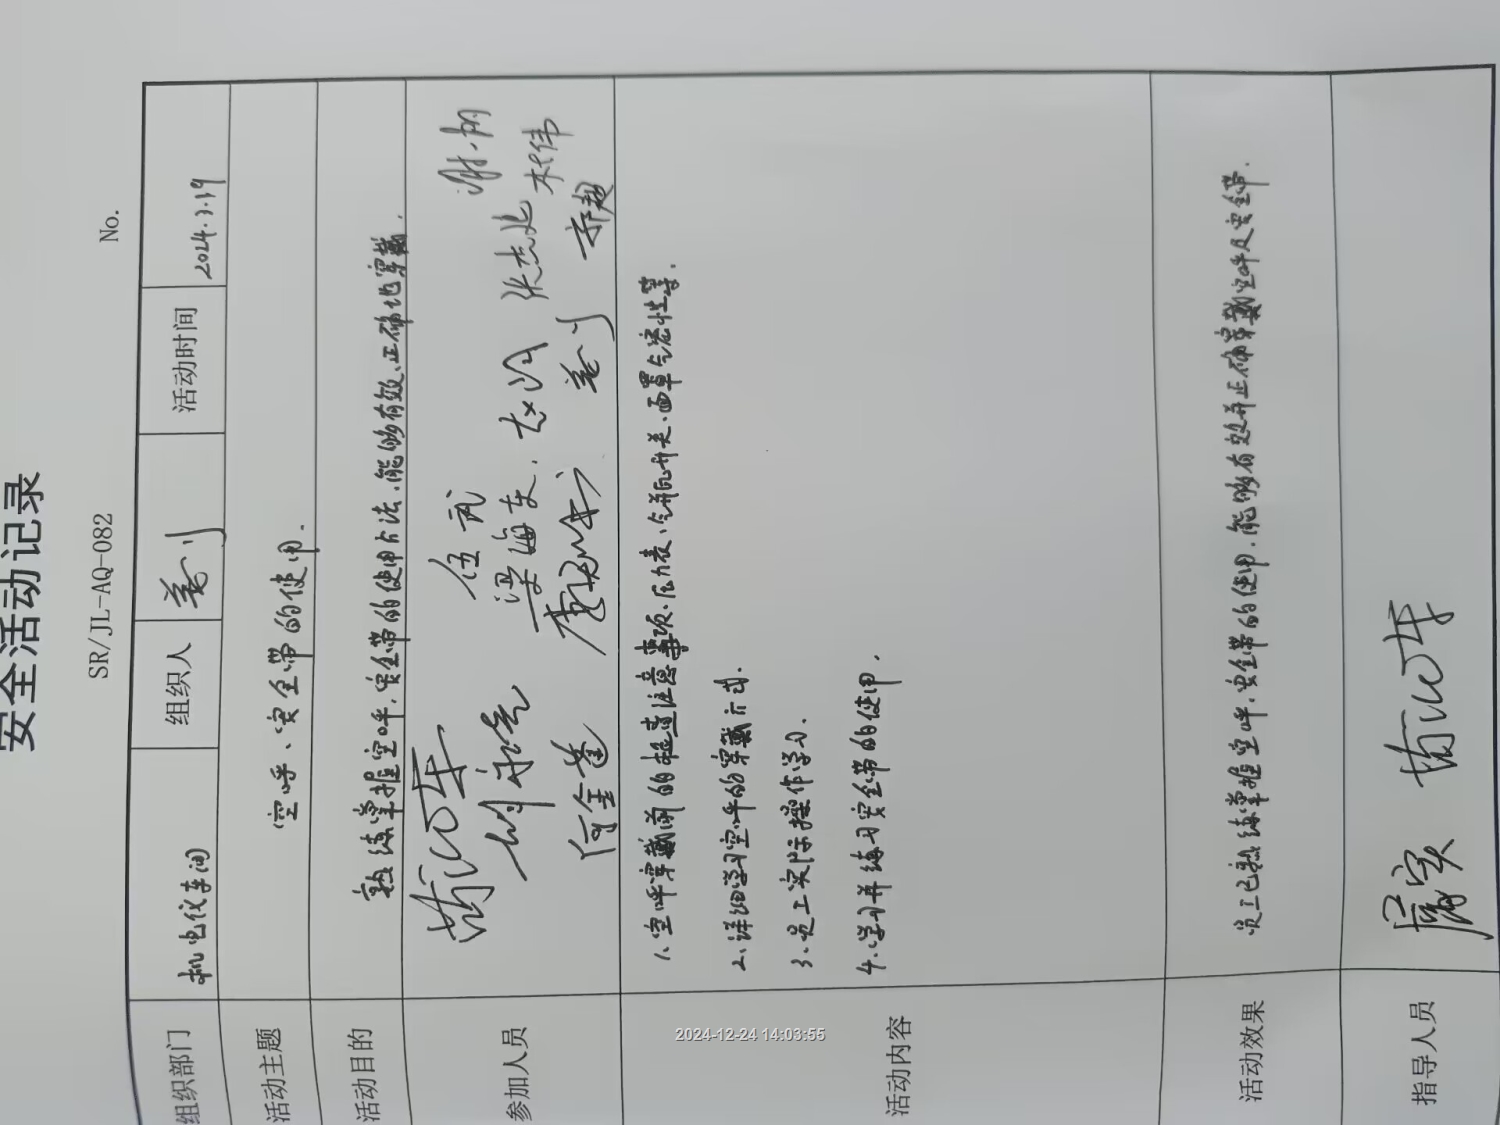 安全活动记录
SR/JL-AQ-082 No.
组织部门 机电仪车间 组织人 活动时间 2024.
活动主题 空呼、安全带的使用.
活动目的 熟练掌握空呼,安全带的使用方法,能够有效、正确地穿戴.
参加人员
伍武
梁海东
张杰
李超
何金莲
活动内容
1、空呼穿戴前的检查注意事项、压力表、气瓶开关、面罩气密性等.
2、详细学习空呼的穿戴方式.
3、员工实际操作学习.
4、学习并练习安全带的使用.
活动效果 员工已熟练掌握空呼,安全带的使用,能够有效并正确穿戴空呼及安全带.
指导人员
2024-12-24 14:03:55